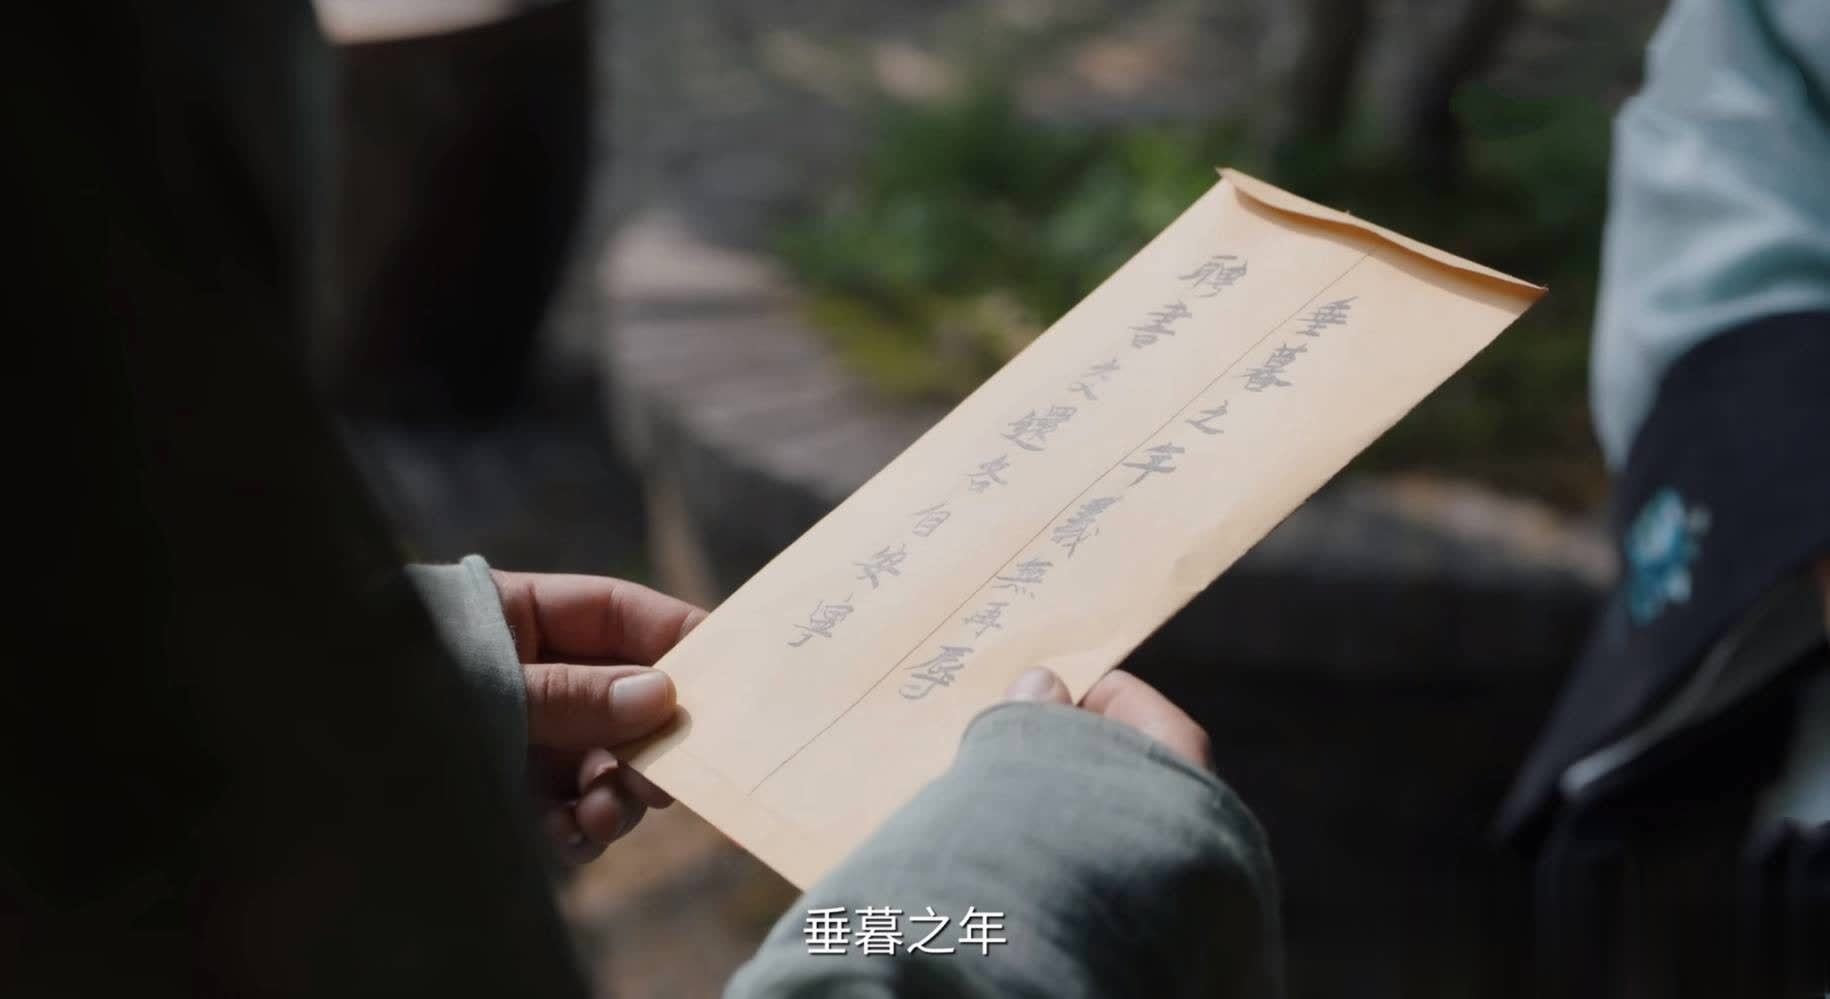 垂暮之年義無再辱
聘書交還各自安寧
垂暮之年